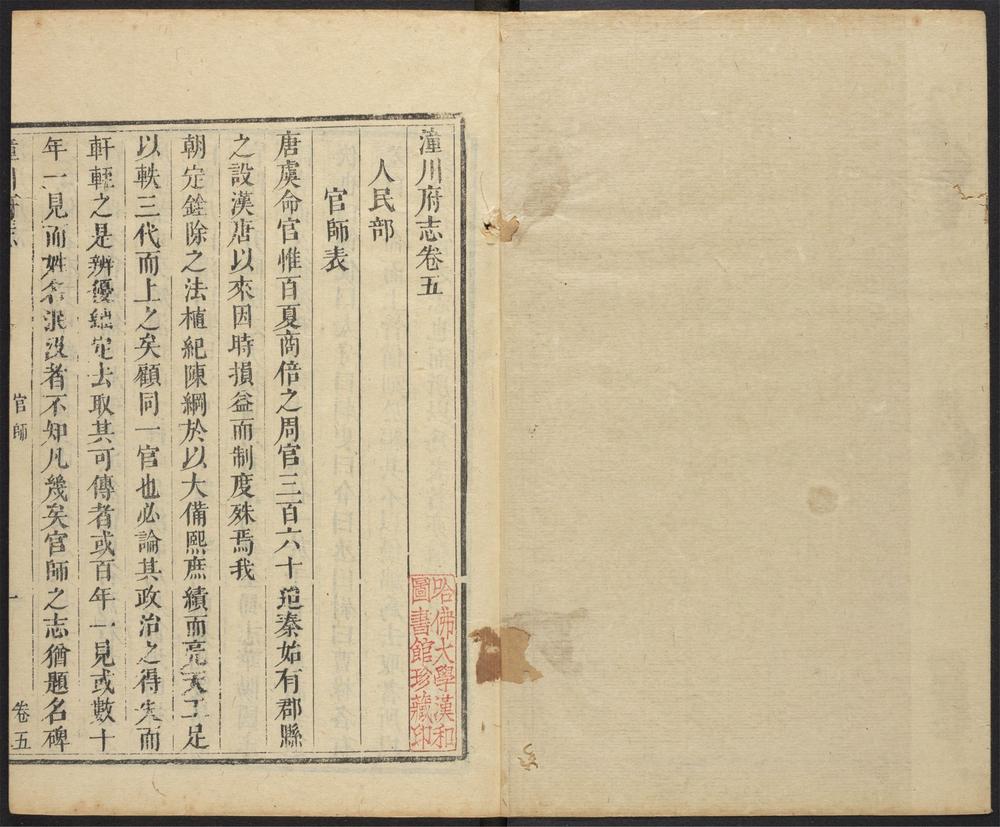 潼川府志卷五
人民部
官師表
唐虞命官惟百夏商倍之周官三百六十迨秦始有郡縣
之設漢唐以來因時損益而制度殊焉我
朝定銓除之法植紀陳綱於以大備熙庶績而亮天工足
以軼三代而上之矣顧同一官也必論其政治之得失而
軒輊之是辨優絀定去取其可傳者或百年一見或數十
年一見而姓名泯沒者不知凡幾矣官師之志猶題名碑
潼川府志
官師
一
卷五
哈佛大學漢和
圖書館珍藏印